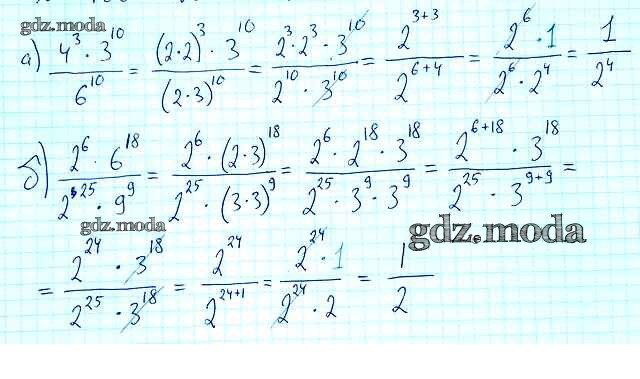 gdz.moda
а) 4³ · 3¹⁰ / 6¹⁰ = (2·2)³ · 3¹⁰ / (2·3)¹⁰ = 2³ · 2³ · 3¹⁰ / 2¹⁰ · 3¹⁰ = 2³⁺³ / 2⁶⁺⁴ = 2⁶ · 1 / 2⁶ · 2⁴ = 1 / 2⁴
б) 2⁶ · 6¹⁸ / 2²⁵ · 9⁹ = 2⁶ · (2·3)¹⁸ / 2²⁵ · (3·3)⁹ = 2⁶ · 2¹⁸ · 3¹⁸ / 2²⁵ · 3⁹ · 3⁹ = 2⁶⁺¹⁸ · 3¹⁸ / 2²⁵ · 3⁹⁺⁹ =
gdz.moda
gdz.moda
= 2²⁴ · 3¹⁸ / 2²⁵ · 3¹⁸ = 2²⁴ / 2²⁴⁺¹ = 2²⁴ · 1 / 2²⁴ · 2 = 1 / 2